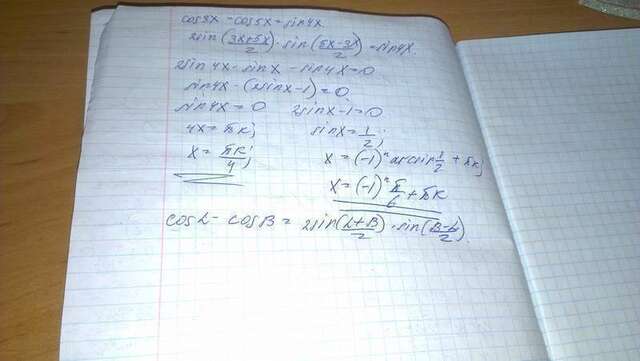 cos3x - cos5x = sin4x
2sin(3x+5x/2)·sin(5x-3x/2)=sin4x
2sin4x·sinx - sin4x=0
sin4x·(2sinx-1)=0
sin4x=0 2sinx-1=0
4x=πk; sinx=1/2;
x=πk/4; x=(-1)^n arcsin1/2+πk;
x=(-1)^n π/6+πk
cosL - cosB = 2sin(L+B/2)·sin(B-L/2)